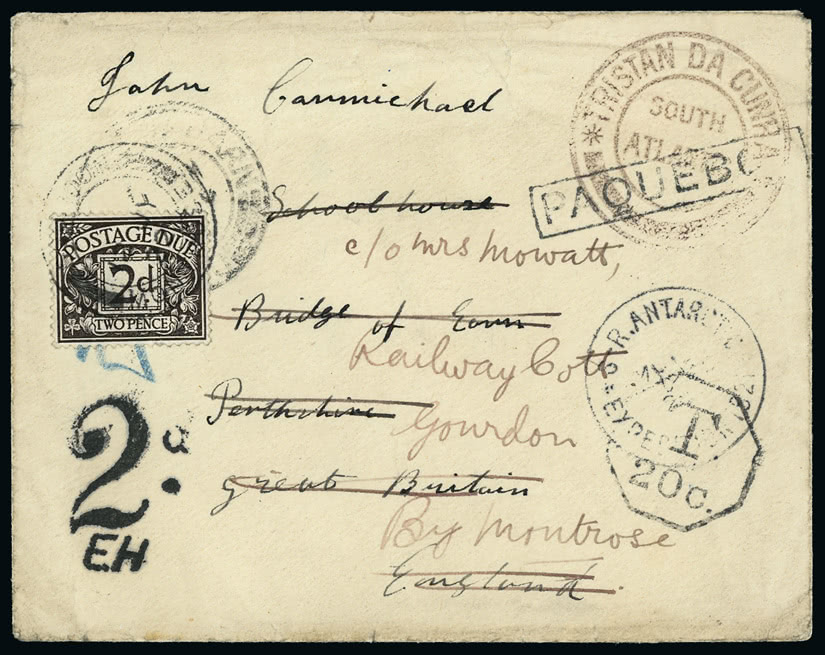 John Carmichael
TRISTAN DA CUNHA
SOUTH
PAQUEBO
School house
c/o Mrs Mowatt,
POSTAGE DUE
2d
TWO PENCE
Bridge of Earn
Railway Cott
Perthshire
Gourdon
Great Britain
By Montrose
England.
T
20c.
2d.
EH